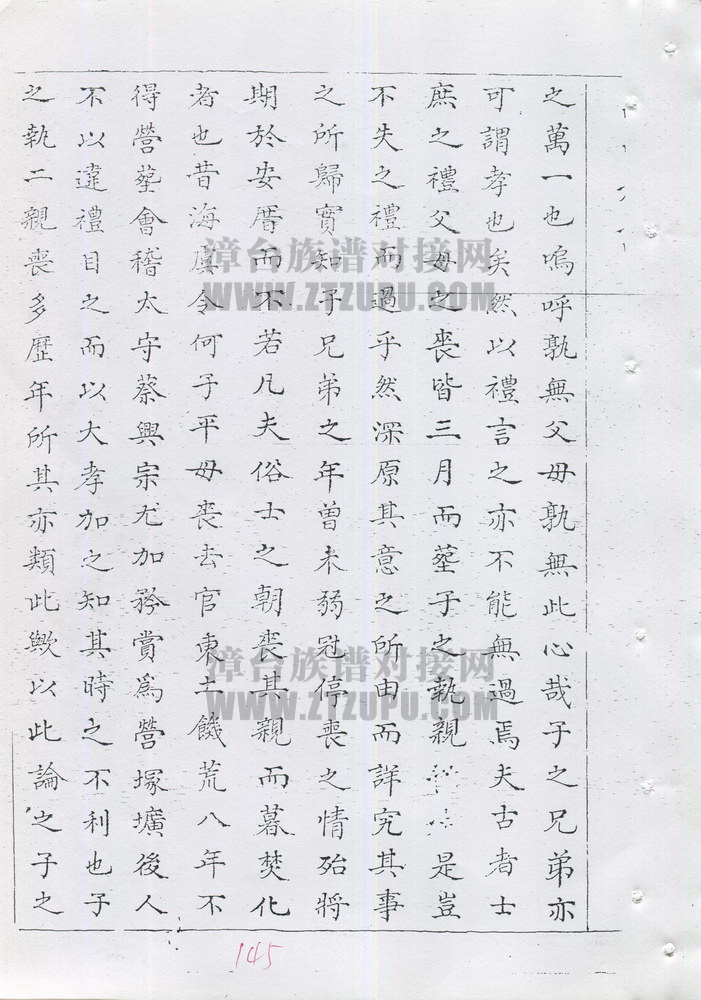 之萬一也嗚呼孰無父母孰無此心哉子之兄弟亦
可謂孝也矣然以禮言之亦不能無過焉夫古者士
庶之禮父母之喪皆三月而塟子之執親是豈
不失之禮而過乎然深原其意之所由而詳究其事
之所歸實知子兄弟之年曾未弱冠停喪之情殆將
期於安厝而不若凡夫俗士之朝喪其親而暮焚化
者也昔海虞令何子平母喪去官東土饑荒八年不
得營塟會稽太守蔡興宗尤加矜賞爲營塚壙後人
不以違禮目之而以大孝加之知其時之不利也子
之執二親喪多歷年所其亦類此歟以此論之子之
漳台族谱对接网
WWW.ZTZUPU.COM
漳台族谱对接网
WWW.ZTZUPU.COM
145